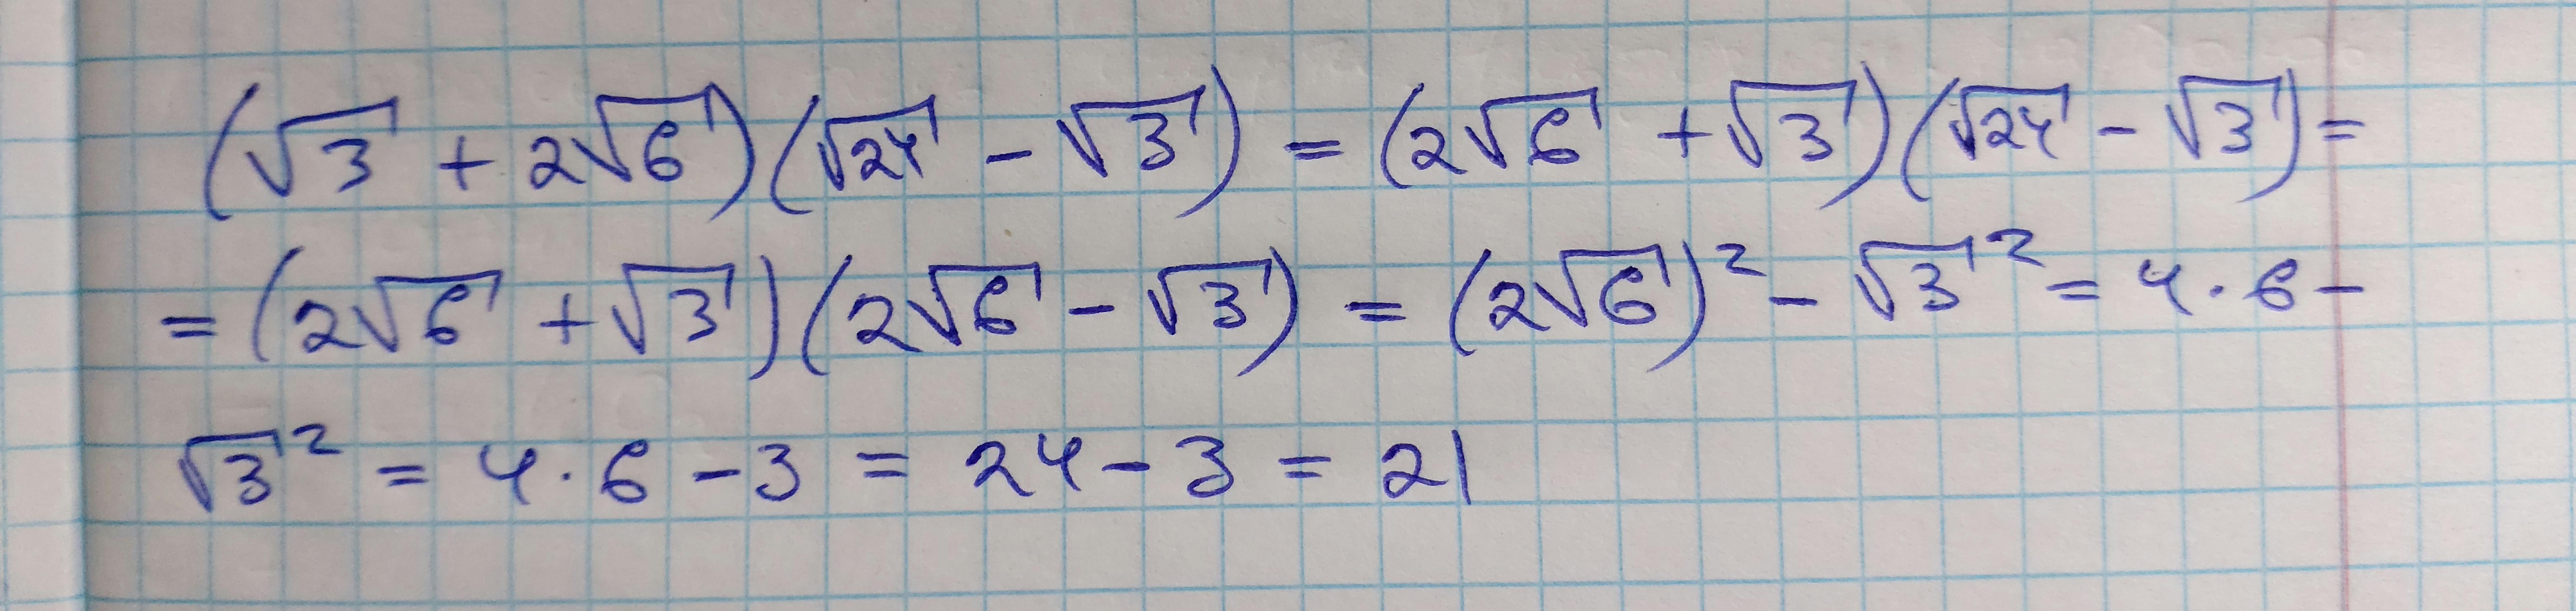 (√3 + 2√6)(√24 - √3) = (2√6 + √3)(√24 - √3) =
= (2√6 + √3)(2√6 - √3) = (2√6)² - √3² = 4 · 6 -
√3² = 4 · 6 - 3 = 24 - 3 = 21